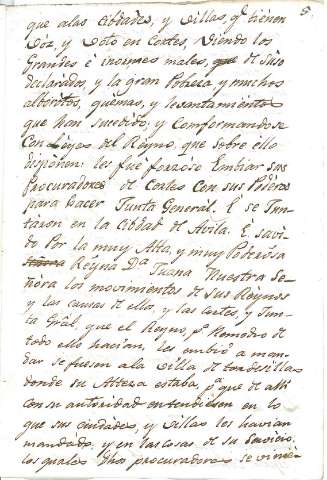 5
que alas Cibdades, y Villas, q̃ tienen
Voz, y Voto en Cortes, Viendo los
Grandes è inormes males, que de suso
declarados, y la gran Pobreza y muchos
alborotos, quemas, y levantamientos
que han sucedido, y Comformandose
Con Leyes del Reyno, que sobre ello
disponen: les fuè forzoso Embiar sus
Procuradores de Cortes Con sus Poderes
para hacer Junta General. E se Jun-
taron en la Cibdad de Avila. E savi-
do Por la muy Alta, y muy Poderosa
Reyna Dª Juana Nuestra Se-
ñora los movimientos de sus Reynos
y las causas de ellos, y las Cortes, y Jun-
ta Grâl, que el Reyno pª Remedio de
todo ello hacian, les embiò a man-
dar se fuesen ala Villa de tordesillas
donde su Alteza estaba, pª que de alli
con su autoridad entendiesen en lo
que sus ciudades, y Villas les havian
mandado, y en las Cosas de su Servicio,
los quales dhos procuradores se vinie-